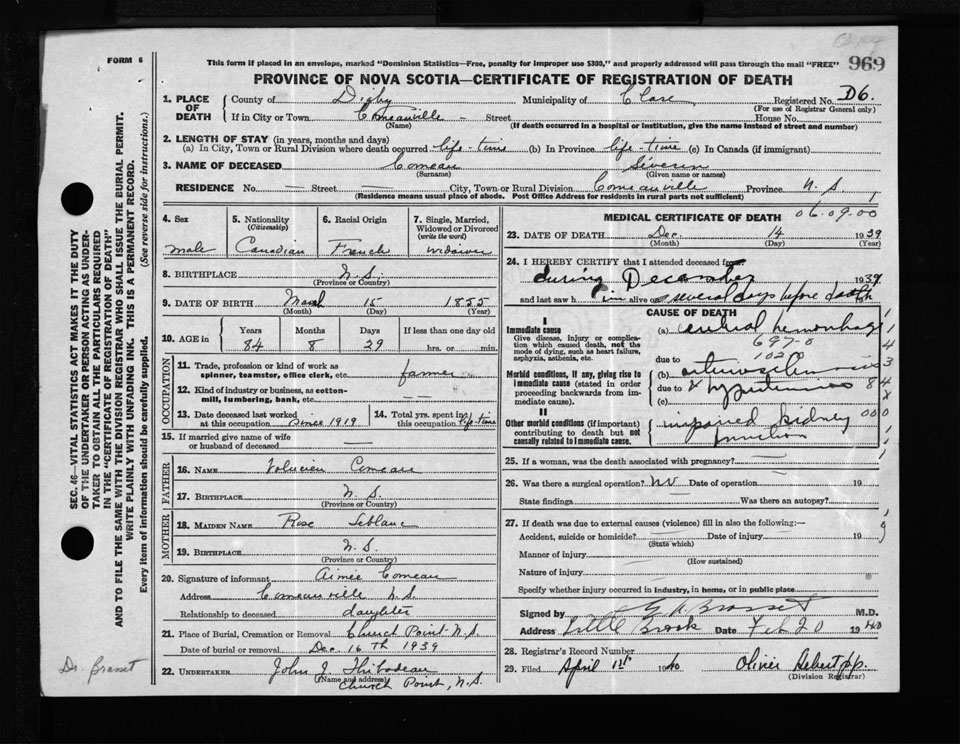 FORM 6
This form if placed in an envelope, marked "Dominion Statistics—Free, penalty for improper use $300," and properly addressed will pass through the mail "FREE"
969
PROVINCE OF NOVA SCOTIA—CERTIFICATE OF REGISTRATION OF DEATH
1. PLACE OF DEATH
County of Digby Municipality of Clare Registered No. D6.
(For use of Registrar General only)
If in City or Town Comeauville - Street House No.
(Name) (If death occurred in a hospital or institution, give the name instead of street and number)
2. LENGTH OF STAY (in years, months and days)
(a) In City, Town or Rural Division where death occurred life-time (b) In Province life-time (c) In Canada (if immigrant)
3. NAME OF DECEASED Comeau Séverin
(Surname) (Given name or names)
RESIDENCE No. — Street — City, Town or Rural Division Comeauville Province N.S
(Residence means usual place of abode. Post Office Address for residents in rural parts not sufficient) 1
4. Sex
male
5. Nationality (Citizenship)
Canadian
6. Racial Origin
French
7. Single, Married, Widowed or Divorced (write the word)
widower
8. BIRTHPLACE N.S.
(Province or Country)
9. DATE OF BIRTH March 15 1855
(Month) (Day) (Year)
10. AGE in Years Months Days If less than one day old
84 8 29 hrs. or min.
OCCUPATION
11. Trade, profession or kind of work as spinner, teamster, office clerk, etc. farmer
12. Kind of industry or business, as cotton-mill, lumbering, bank, etc. — —
13. Date deceased last worked at this occupation since 1919
14. Total yrs. spent in this occupation life-time
15. If married give name of wife or husband of deceased —
FATHER
16. NAME Comeau
17. BIRTHPLACE N.S.
(Province or Country)
MOTHER
18. MAIDEN NAME Rose Leblanc
19. BIRTHPLACE N.S.
(Province or Country)
20. Signature of informant Aimée Comeau
Address Comeauville N.S
Relationship to deceased daughter
21. Place of Burial, Cremation or Removal Church Point N.S.
Date of burial or removal Dec. 16th 1939
22. UNDERTAKER John J. Thibodeau
(Name and address)
Church Point, N.S.
MEDICAL CERTIFICATE OF DEATH 06.09.00
23. DATE OF DEATH Dec. 14 1939
(Month) (Day) (Year)
24. I HEREBY CERTIFY that I attended deceased from
during December 1939
and last saw him alive on several days before death
CAUSE OF DEATH
I
Immediate cause
Give disease, injury or complication which caused death, not the mode of dying, such as heart failure, asphyxia, asthenia, etc.
(a) cerebral hemorrhage
697-0
due to 1020
Morbid conditions, if any, giving rise to immediate cause (stated in order proceeding backwards from immediate cause).
(b) arteriosclerosis
due to
(c)
II
Other morbid conditions (if important) contributing to death but not causally related to immediate cause.
impaired kidney function
000
25. If a woman, was the death associated with pregnancy? —
26. Was there a surgical operation? no Date of operation 19
State findings Was there an autopsy?
27. If death was due to external causes (violence) fill in also the following:—
Accident, suicide or homicide? Date of injury 19
(State which)
Manner of injury
(How sustained)
Nature of injury
Specify whether injury occurred in industry, in home, or in public place
Signed by Brasset M.D.
Address Little Brook Date Feb 20 1940
28. Registrar's Record Number
29. Filed April 1st 1940 Olivier Hebert pp.
(Division Registrar)
SEC. 46—VITAL STATISTICS ACT MAKES IT THE DUTY OF THE UNDERTAKER OR PERSON ACTING AS UNDERTAKER TO OBTAIN ALL THE PARTICULARS REQUIRED IN THE "CERTIFICATE OF REGISTRATION OF DEATH" AND TO FILE THE SAME WITH THE DIVISION REGISTRAR WHO SHALL ISSUE THE BURIAL PERMIT.
WRITE PLAINLY WITH UNFADING INK. THIS IS A PERMANENT RECORD.
Every item of information should be carefully supplied. (See reverse side for instructions.)
Dr. Brasset